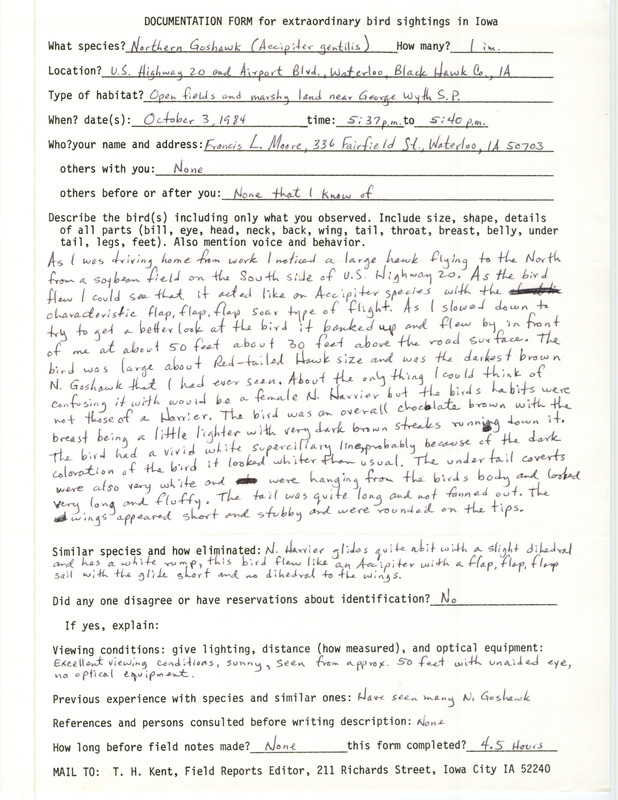 DOCUMENTATION FORM for extraordinary bird sightings in Iowa
What species? Northern Goshawk (Accipiter gentilis) How many? 1 im.
Location? U.S. Highway 20 and Airport Blvd., Waterloo, Black Hawk Co., IA
Type of habitat? Open fields and marshy land near George Wyth S.P.
When? date(s): October 3, 1984 time: 5:37 p.m. to 5:40 p.m.
Who? your name and address: Francis L. Moore, 336 Fairfield St., Waterloo, IA 50703
others with you: None
others before or after you: None that I know of
Describe the bird(s) including only what you observed. Include size, shape, details
of all parts (bill, eye, head, neck, back, wing, tail, throat, breast, belly, under
tail, legs, feet). Also mention voice and behavior.
As I was driving home from work I noticed a large hawk flying to the North
from a soybean field on the South side of U.S. Highway 20. As the bird
flew I could see that it acted like an Accipiter species with the
characteristic flap, flap, flap soar type of flight. As I slowed down to
try to get a better look at the bird it banked up and flew by in front
of me at about 50 feet about 30 feet above the road surface. The
bird was large about Red-tailed Hawk size and was the darkest brown
N. Goshawk that I had ever seen. About the only thing I could think of
confusing it with would be a female N. Harrier but the birds habits were
not those of a Harrier. The bird was an overall chocolate brown with the
breast being a little lighter with very dark brown streaks running down it.
The bird had a vivid white supercillary line, probably because of the dark
coloration of the bird it looked whiter than usual. The undertail coverts
were also very white and were hanging from the birds body and looked
very long and fluffy. The tail was quite long and not fanned out. The
wings appeared short and stubby and were rounded on the tips.
Similar species and how eliminated: N. Harrier glides quite abit with a slight dihedral
and has a white rump, this bird flew like an Accipiter with a flap, flap, flap
sail with the glide short and no dihedral to the wings.
Did any one disagree or have reservations about identification? No
If yes, explain:
Viewing conditions: give lighting, distance (how measured), and optical equipment:
Excellent viewing conditions, sunny, seen from approx. 50 feet with unaided eye,
no optical equipment.
Previous experience with species and similar ones: Have seen many N. Goshawk
References and persons consulted before writing description: None
How long before field notes made? None this form completed? 4.5 Hours
MAIL TO: T. H. Kent, Field Reports Editor, 211 Richards Street, Iowa City IA 52240